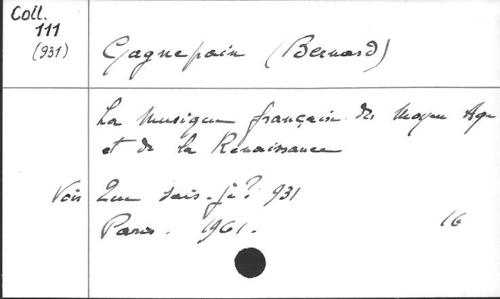 Coll.
111
(931)
Gagnepain (Bernard)
La Musique française du Moyen Age
et de la Renaissance
Voir Que sais-je? 931
Paris. 1961. 16